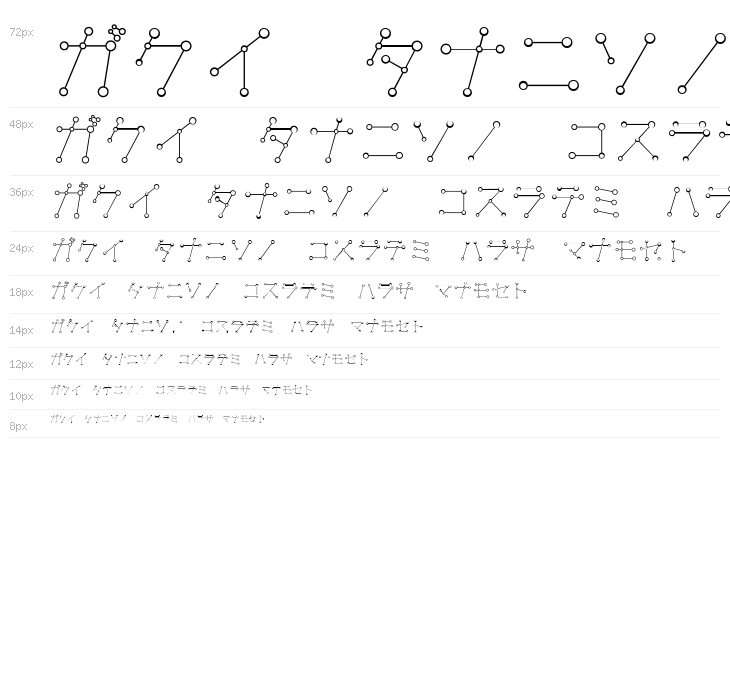 72px ガクイ タナニソノ
48px ガクイ タナニソノ コスラ
36px ガクイ タナニソノ コスラテミ ハラ
24px ガクイ タナニソノ コスラテミ ハラサ マナモセト
18px ガクイ タナニソノ コスラテミ ハラサ マナモセト
14px ガクイ タナニソノ コスラテミ ハラサ マナモセト
12px ガクイ タナニソノ コスラテミ ハラサ マナモセト
10px ガクイ タナニソノ コスラテミ ハラサ マナモセト
8px ガクイ タナニソノ コスラテミ ハラサ マナモセト